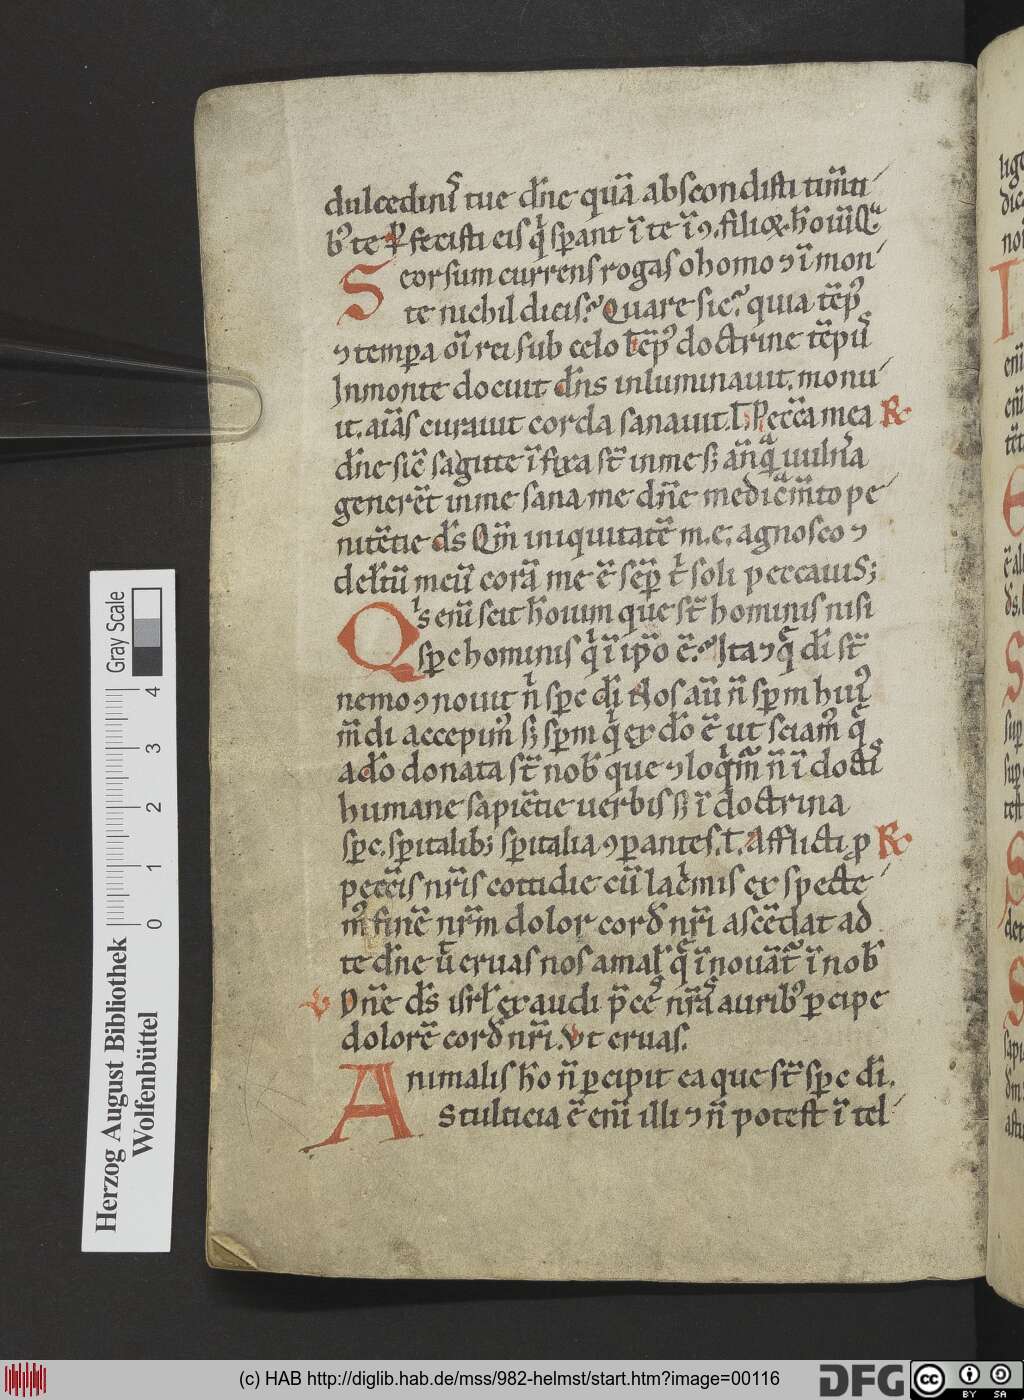 dulcediniſ tue dn̄e quā abſcondiſti tim̄ti
bꝰ te ꝑfeciſti eiſ q̇ ſꝑant ī te ī ꝯ. filioꝝ hoīū
Seorſum currenſ rogaſ o homo ⁊ ī mon
te nichil diciſ? Quare ſic? quia tēpꝰ
⁊ tempꝛa oī rei ſub celo
In monte docuit dn̄s inluminauit. monu
it. aīaſ curauit corda ſanauit. Peccāa mea R
dn̄e ſic̄ ſagitte īfixa ſt̄ in me ſꝫ anq̄ uulnꝛa
generēt in me ſana me dn̄e medicam̄to pe
nitētie d̄s Qm̄ iniquitatē m. e. agnoſco ⁊
delc̄tū meū corā me ē ſēꝑ t̄ ſoli peccauiS;
Qiſ enī ſcit hoīum que ſt̄ hominiſ niſi
ſꝑc hominiſ q̇ ī ipo ē? Ita ⁊ q̄ dī ſt̄
nemo ꝯnouit n̄ ſꝑc dī Noſ aū n̄ ſꝑm huiꝰ
m̄di accepimꝰ ſꝫ ſꝑm q̇ ex do ē ut ſciamꝰ q̄
a do donata ſt̄ nob̄ que ⁊ loq̇m̄ n̄ ī doctiſ
humane ſapiētie uerbiſ ſꝫ ī doctrina
ſꝑc. ſꝑitalibꝫ ſꝑitalia ꝯꝑanteſ. Afflicti ꝓ R
peccīſ nr̄iſ cottidie cū lac̄miſ expecte
mꝰ finē nr̄m dolor cord̄ nr̄i aſcēdat ad
te dn̄e ū eruaſ noſ a mal̄ q̄ īnouāt ī nob̄
V Dn̄e d̄s iſrl̄ exaudi p̄ceſ nr̄aſ auribꝰ ꝑcipe
dolorē cord̄ nr̄i. Vt eruaſ.
Animaliſ ho n̄ ꝑcipit ea que ſt̄ ſꝑc dī.
Stulticia ē enī illi ⁊ n̄ poteſt ītel
Herzog August Bibliothek
Wolfenbüttel
0 1 2 3 4
Gray Scale
(c) HAB http://diglib.hab.de/mss/982-helmst/start.htm?image=00116
DFG
cc BY SA